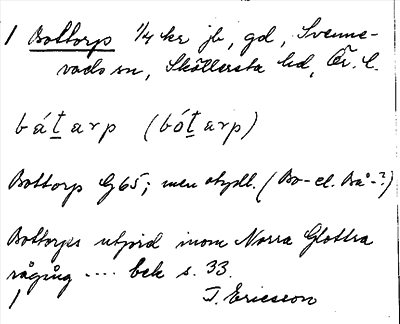 1 Bottorps 1/4 kr jb, gd, Svenne-
vads sn, Sköllersta hd, Ör. l.
båt̲arp (bót̲arp)
Bottorp G65; men otydl. (Bo- el. Bå-?)
Bottorps utjord inom Norra Glottra
rågång .... bek s. 33.
1 J. Ericsson